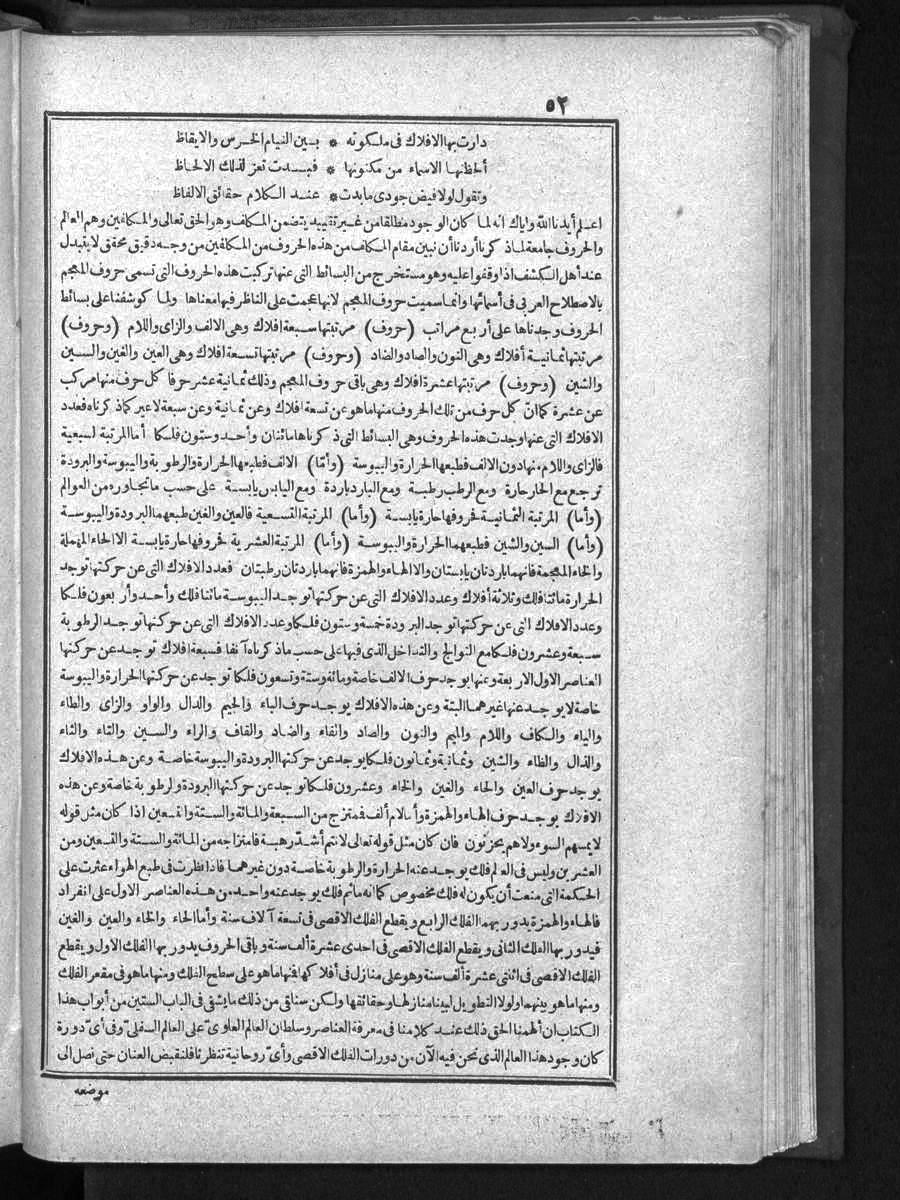 ٥٢
دارت بها الافلاك فى ملكوته * بين النيام الخرس والايقاظ
ألحظنها الاسماء من مكنونها * فبدت تعز لذلك الالحاظ
وتقول لولا فيض جودى مابدت * عند الكلام حقائق الالفاظ
اعلم أيدنا الله واياك انه لما كان الوجود مطلقا من غير تقييد يتضمن المكلف وهو الحق تعالى والمكلفين وهم العالم
والحروف جامعة لما ذكرنا أردنا أن نبين مقام المكلف من هذه الحروف من المكلفين من وجه دقيق محقق لا يتبدل
عند أهل الكشف اذا وقفوا عليه وهو مستخرج من البسائط التى عنها تركبت هذه الحروف التى تسمى حروف المعجم
بالاصطلاح العربى فى أسمائها وانما سميت حروف المعجم لانها عجمت على الناظر فيها معناها ولما كوشفنا على بسائط
الحروف وجدناها على أربع مراتب (حروف) مرتبتها سبعة افلاك وهى الالف والزاى واللام (وحروف)
مرتبتها ثمانية أفلاك وهى النون والصاد والضاد (وحروف) مرتبتها تسعة افلاك وهى العين والغين والسين
والشين (وحروف) مرتبتها عشرة افلاك وهى باقى حروف المعجم وذلك ثمانية عشر حرفا كل حرف منها مركب
عن عشرة كما انّ كل حرف من تلك الحروف منها ماهو عن تسعة افلاك وعن ثمانية وعن سبعة لاغير كما ذكرناه فعدد
الافلاك التى عنها وجدت هذه الحروف وهى البسائط التى ذكرناها مائتان وأحد وستون فلكا أما المرتبة السبعية
فالزاى واللام منها دون الالف فطبعها الحرارة واليبوسة (وأمّا) الالف فطبعها الحرارة والرطوبة واليبوسة والبرودة
ترجع مع الحار حارة ومع الرطب رطبة ومع البارد باردة ومع اليابس يابسة على حسب ماتجاوره من العوالم
(وأما) المرتبة الثمانية فحروفها حارة يابسة (وأما) المرتبة التسعية فالعين والغين طبعهما البرودة واليبوسة
(وأما) السين والشين فطبعهما الحرارة واليبوسة (وأما) المرتبة العشرية فحروفها حارة يابسة الا الحاء المهملة
والخاء المعجمة فانهما باردتان يابستان والا الهاء والهمزة فانهما باردتان رطبتان فعدد الافلاك التى عن حركتها توجد
الحرارة مائتا فلك وثلاثة أفلاك وعدد الافلاك التى عن حركتها توجد اليبوسة مائتا فلك وأحد وأربعون فلكا
وعدد الافلاك التى عن حركتها توجد البرودة خمسة وستون فلكا وعدد الافلاك التى عن حركتها توجد الرطوبة
سبعة وعشرون فلكا مع التوالج والتداخل الذى فيها على حسب ماذكرناه آنفا فسبعة افلاك توجد عن حركتها
العناصر الاول الاربعة وعنها يوجد حرف الالف خاصة ومائة وستة وتسعون فلكا توجد عن حركتها الحرارة واليبوسة
خاصة لا يوجد عنها غيرهما البتة وعن هذه الافلاك يوجد حرف الباء والجيم والدال والواو والزاى والطاء
والياء والكاف واللام والميم والنون والصاد والفاء والضاد والقاف والراء والسين والتاء والثاء
والذال والظاء والشين وثمانية وثمانون فلكا يوجد عن حركتها البرودة واليبوسة خاصة وعن هذه الافلاك
يوجد حرف العين والحاء والغين والخاء وعشرون فلكا توجد عن حركتها البرودة والرطوبة خاصة وعن هذه
الافلاك يوجد حرف الهاء والهمزة وأما لام ألف فممتزج من السبعة والمائة والستة والتسعين اذا كان مثل قوله
لايمسهم السوء ولاهم يحزنون فان كان مثل قوله تعالى لانتم أشدّ رهبة فامتزاجه من المائة والستة والتسعين ومن
العشرين وليس فى العالم فلك يوجد عنه الحرارة والرطوبة خاصة دون غيرهما فاذا نظرت فى طبع الهواء عثرت على
الحكمة التى منعت أن يكون له فلك مخصوص كما انه ماثم فلك يوجد عنه واحد من هذه العناصر الاول على انفراد
فالهاء والهمزة يدور بهما الفلك الرابع ويقطع الفلك الاقصى فى تسعة آلاف سنة وأما الحاء والخاء والعين والغين
فيدور بها الفلك الثانى ويقطع الفلك الاقصى فى احدى عشرة ألف سنة وباقى الحروف يدور بها الفلك الاول ويقطع
الفلك الاقصى فى اثنتى عشرة ألف سنة وهو على منازل فى أفلاكها فمنها ماهو على سطح الفلك ومنها ماهو فى مقعر الفلك
ومنها ماهو بينهما ولولا التطويل لبينا منازلها وحقائقها ولكن سنلقى من ذلك مايشفى فى الباب الستين من أبواب هذا
الكتاب ان ألهمنا الحق ذلك عند كلامنا فى معرفة العناصر وسلطان العالم العلوىّ على العالم السفلىّ وفى أىّ دورة
كان وجود هذا العالم الذى نحن فيه الآن من دورات الفلك الاقصى وأىّ روحانية تنظرنا فلنقبض العنان حتى نصل الى
موضعه